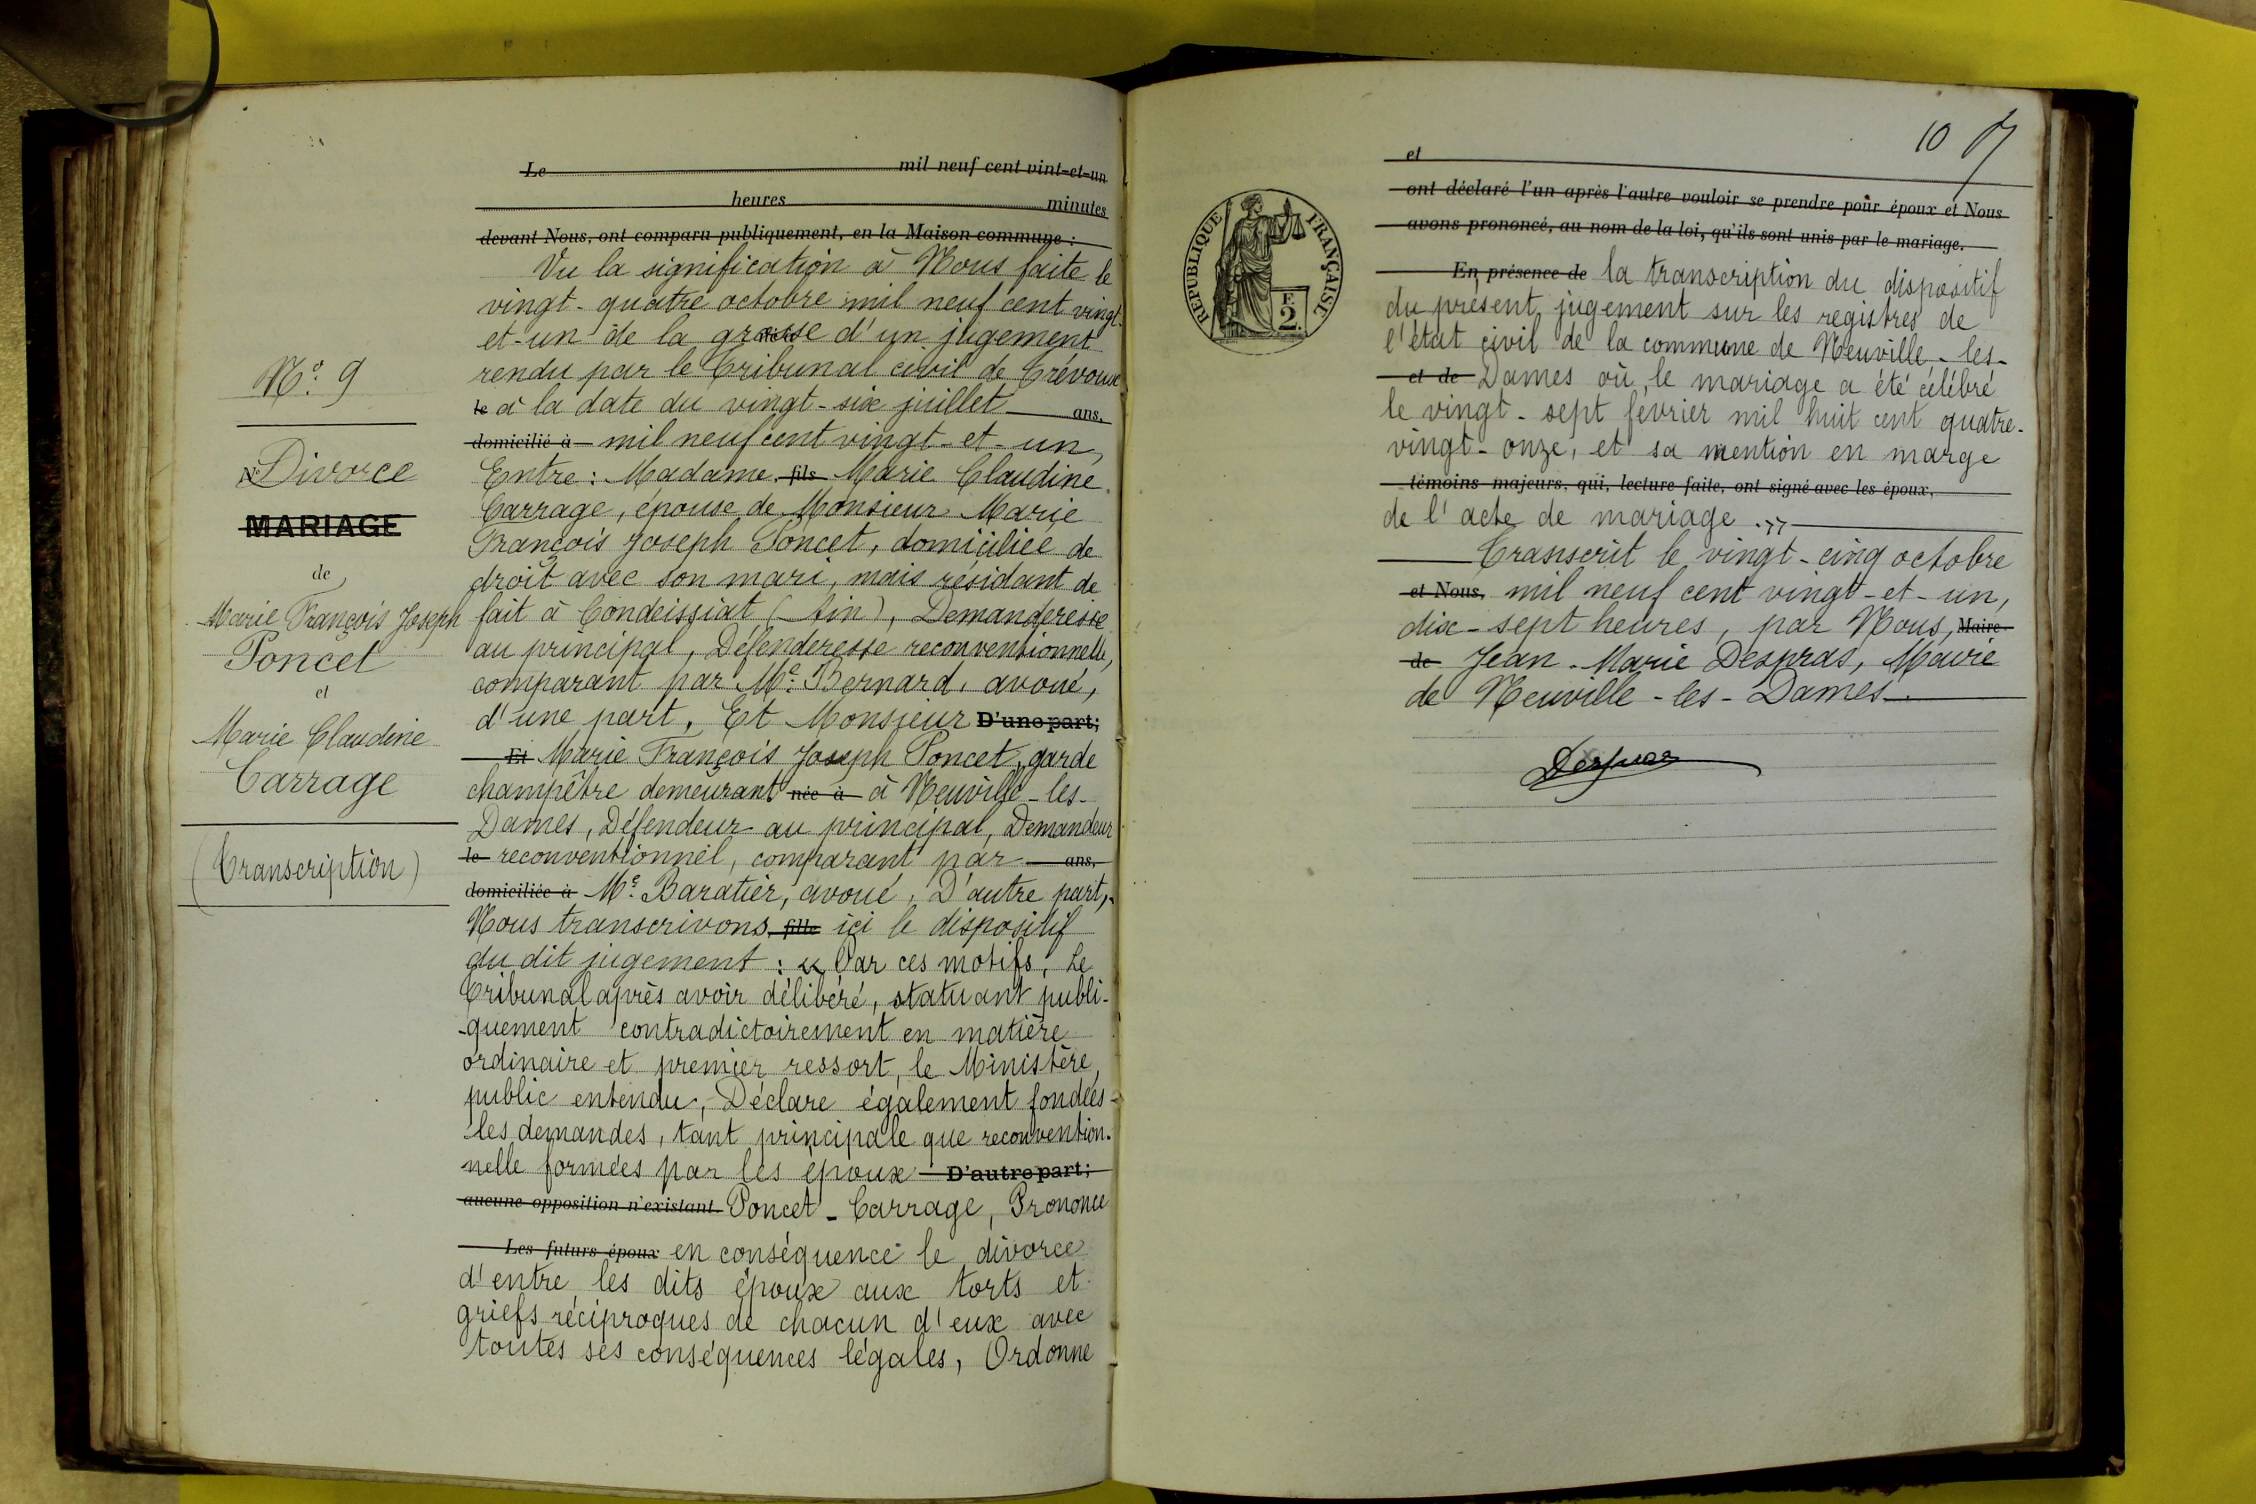 N° 9
N° Divorce
MARIAGE
de
Marie François Joseph
Poncet
et
Marie Claudine
Carrage
(Transcription)
Le mil neuf cent vint-et-un
heures minutes
devant Nous, ont comparu publiquement, en la Maison commune :
Vu la signification à Nous faite le
vingt-quatre octobre mil neuf cent vingt-
et-un de la grosse d'un jugement
rendu par le Tribunal civil de Trévoux
le à la date du vingt-six juillet ans,
domicilié à mil neuf cent vingt-et-un,
Entre : Madame fils Marie Claudine
Carrage, épouse de Monsieur Marie
François Joseph Poncet, domiciliée de
droit avec son mari, mais résidant de
fait à Condeissiat (Ain), Demanderesse
au principal, Défenderesse reconventionnelle,
comparant par Me Bernard, avoué,
d'une part, Et Monsieur D'une part;
Et Marie François Joseph Poncet, garde
champêtre demeurant née à à Neuville-les-
Dames, Défendeur au principal, Demandeur
le reconventionnel, comparant par ans,
domiciliée à Me Baratier, avoué, D'autre part,
Nous transcrivons fille ici le dispositif
du dit jugement : « Par ces motifs, Le
Tribunal après avoir délibéré, statuant publi-
-quement contradictoirement en matière
ordinaire et premier ressort, le Ministère
public entendu, Déclare également fondées
les demandes, tant principale que reconvention-
nelle formées par les époux D'autre part;
aucune opposition n'existant. Poncet - Carrage, Prononce
Les futurs époux en conséquence le divorce
d'entre les dits époux aux torts et
griefs réciproques de chacun d'eux avec
toutes ses conséquences légales, Ordonne
10
RÉPUBLIQUE FRANÇAISE
F.
2.
et
ont déclaré l'un après l'autre vouloir se prendre pour époux et Nous
avons prononcé, au nom de la loi, qu'ils sont unis par le mariage.
En présence de la transcription du dispositif
du présent jugement sur les registres de
l'état civil de la commune de Neuville-les-
et de Dames où le mariage a été célébré
le vingt-sept février mil huit cent quatre-
vingt-onze, et sa mention en marge
témoins majeurs, qui, lecture faite, ont signé avec les époux,
de l'acte de mariage. »
Transcrit le vingt-cinq octobre
et Nous, mil neuf cent vingt-et-un,
dix-sept heures, par Nous, Maire
de Jean-Marie Despras, Maire
de Neuville-les-Dames.
Despras